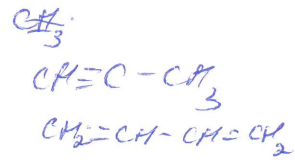 CH≡C-CH3
CH2=CH-CH=CH2